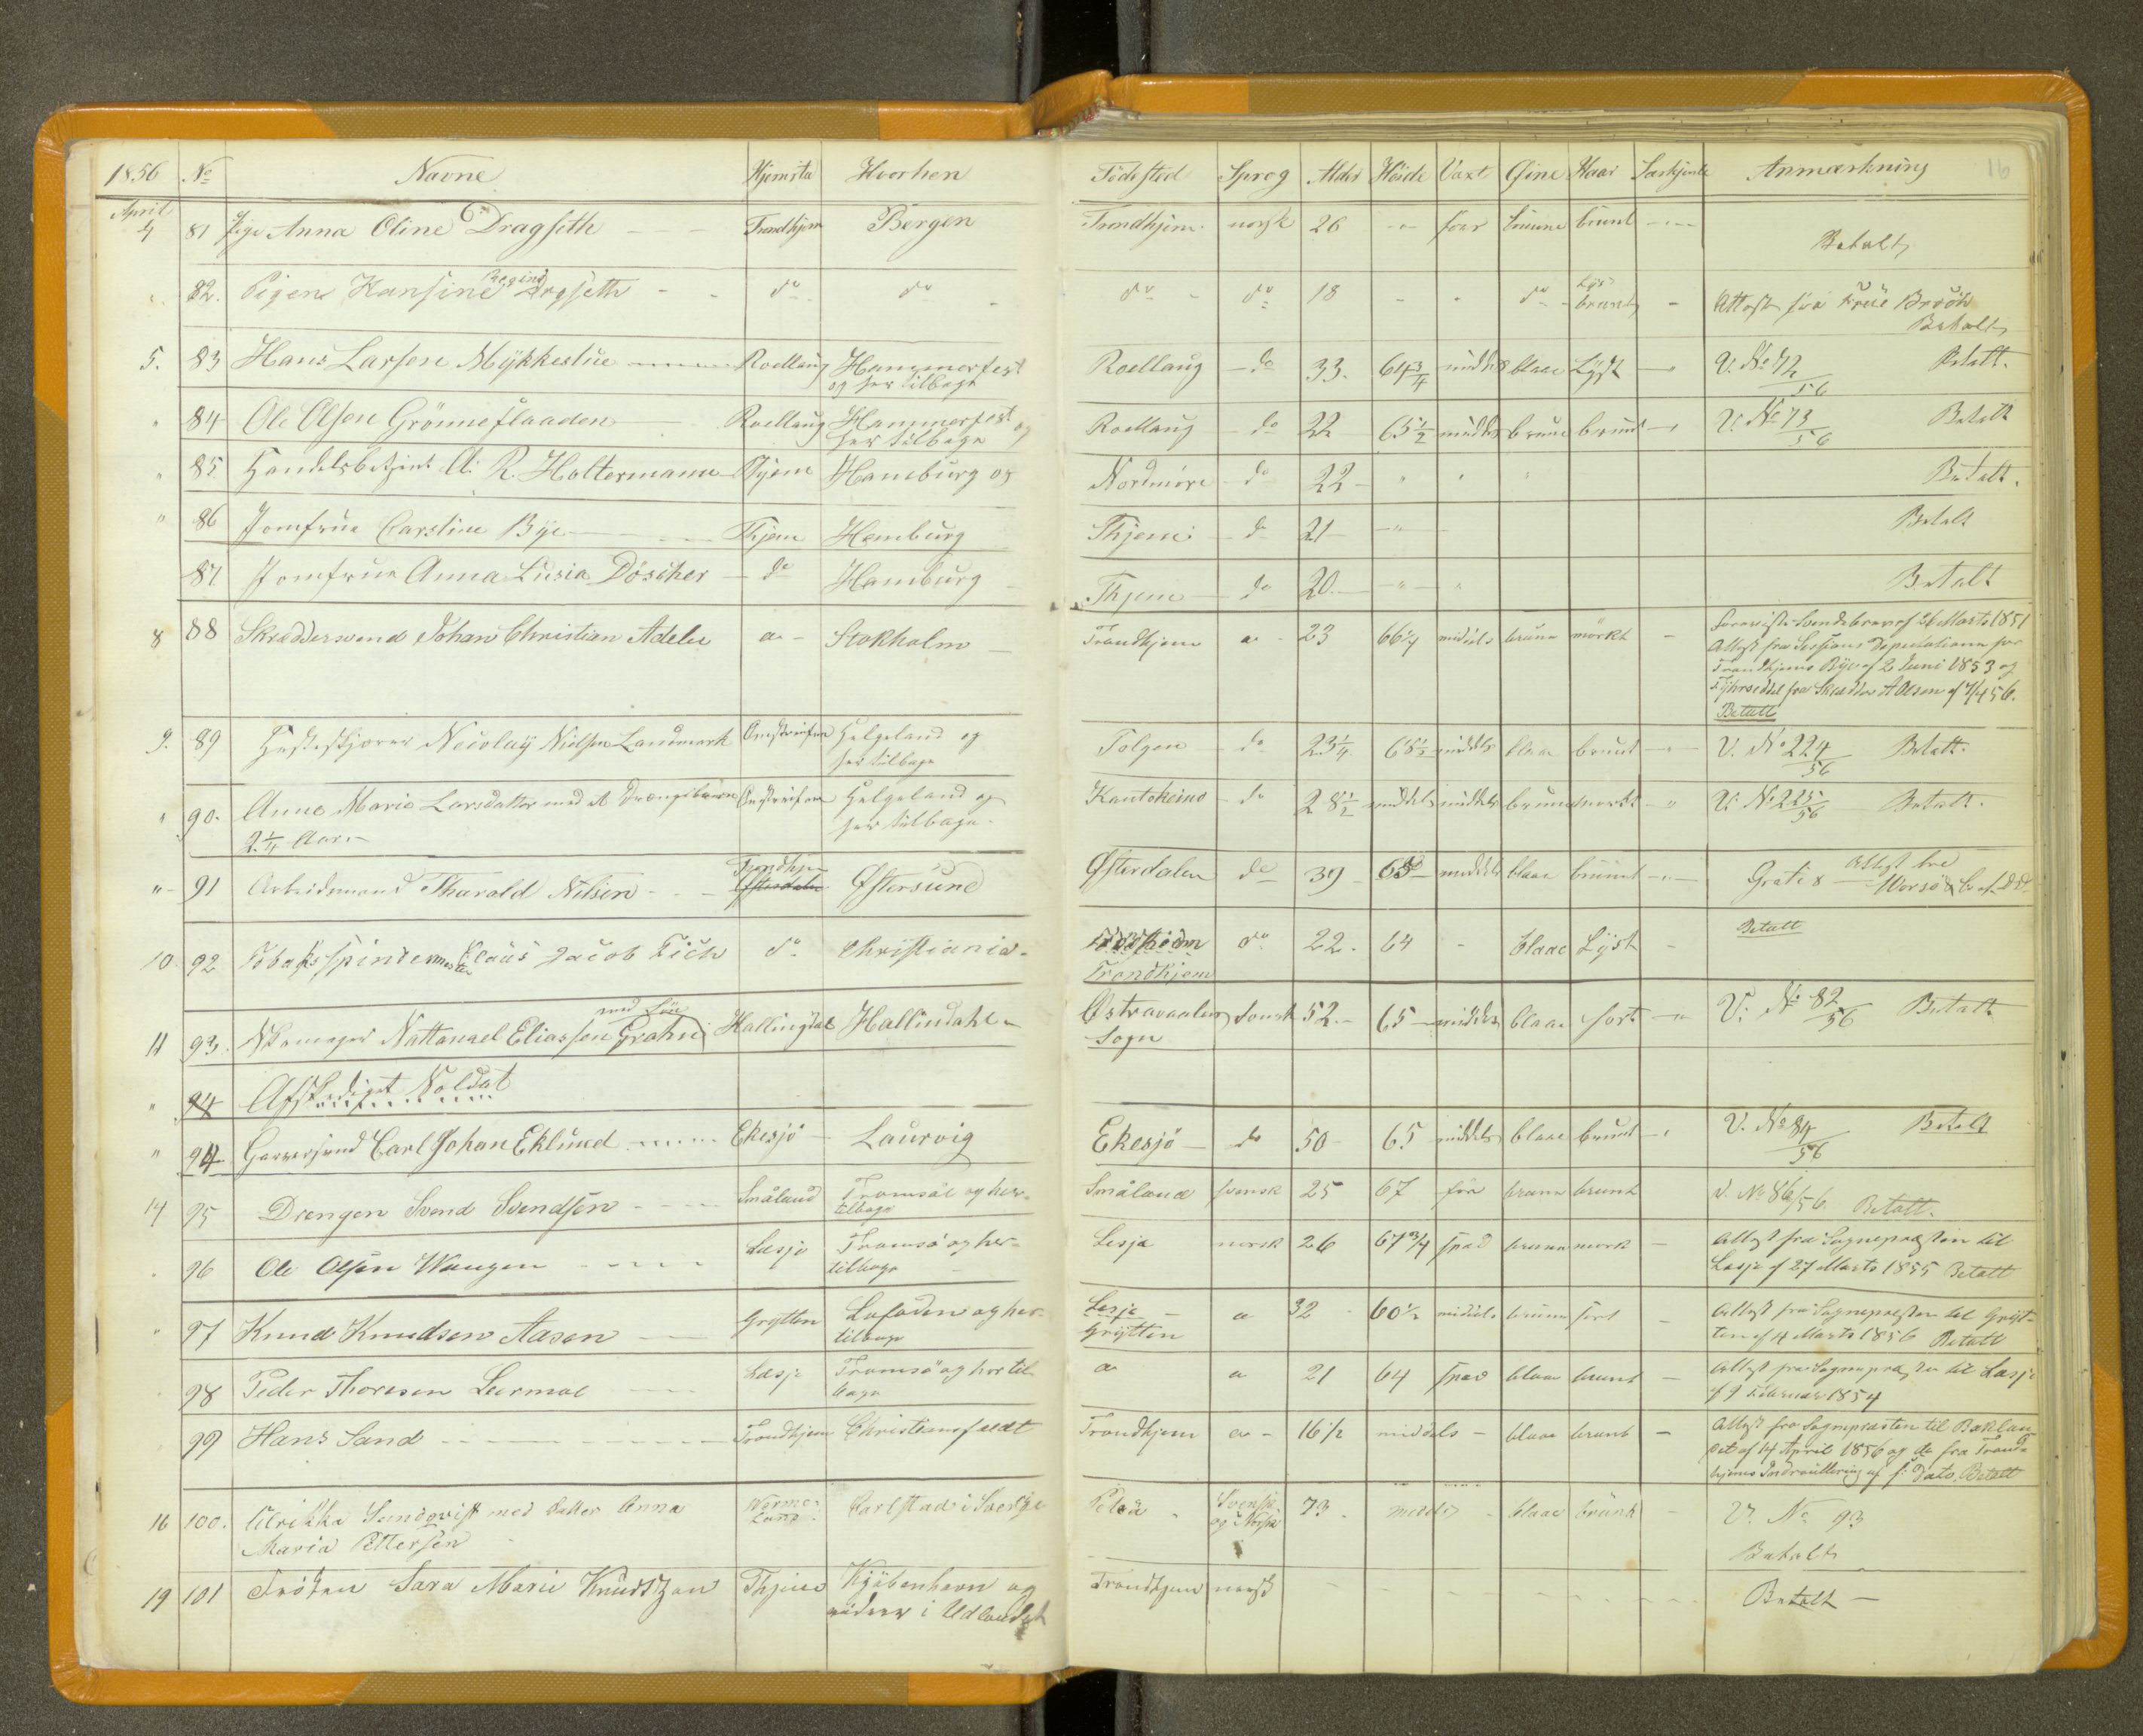 1856 No Navne Hjemsta Hvorhen Födested Sprog Alder Höide Vaxt Öine Haar Særkjende Anmærkning 16
April
4 81 Pige Anna Oline Dragseth Trondhjem Bergen Trondhjem norsk 26 " svær brune brunt Betalt
82. Pigen Hansine Regine Dragseth do do do do 18 do Lys brunt Attest fra Frue Betalt
5. 83 Hans Larsen Mÿkkestue Roellaug Hammerfest Roellaug do 33. 64 3/4 middels blaae Lÿst V. No 72/56 Betalt.
og her tilbage
" 84 Ole Olsen Grönneflaaden Roellaug Hammerfest og Roellaug do 22 65 1/2 middels brune brunt V. No 73/56 Betalt
her tilbage
" 85 Handelsbetjent A. R. Holtermann Thjem Hamburg og Nordmöre do 22 " " " Betalt.
" 86 Jomfrue Carstine Bÿe Thjem Hamburg Thjem do 21 " Betalt
87 Jomfrue Anna Lusia Döscher do Hamburg Thjem do 20. " " Betalt
8 88 Skreddersvend Johan Christian Adeler a Stokholm Trondhjem a 23 66 1/4 middels brune mörkt Foreviste Svendebrev af Marts 1851
Attest fra Sessions Deputationen for
Trondhjems Bÿe af 2 Juni 1853 og
fra Skredder A Olsen af 7/4 56.
Betalt
9. 89 Nicolaÿ Nielsen Landmark Omstreifer Helgeland og Tolgen do 23 1/4 68 1/2 middels blaae brunt V. No 224/56 Betalt.
her tilbage
" 90. Anne Marie Larsdatter med et Drengebarn Omstreifer Helgeland og Kautokeino do 28 1/2 middels middels brune mørkt V. No 225/56 Betalt.
2 1/4 Aar. her tilbage.
" 91 Arbeidsmand Tharald Nilsen Trondhjem Østersund Østerdalen do 39 middels blaae brunt Gratis Attest
Østerdalen
10 92 Tobaksspindermester Claus Jacob Fich do Christiania. do 22. 64 blaae Lÿst Betalt
Trondhjem
11 93. Nattanael Eliassen Grahn Hallingdal Hallindahl Svensk 52. 65 middels blaae sort V: No 82/56 Betalt
Sogn
" 94 Afskediget Soldat
" 94 Garversvend Carl Johan Eklund Ekesjö Laurvig Ekesjö do 50 65 middels blaae brunt V. No 84/56 Betalt
14 95 Drengen Svend Svendsen Småland Tromsöe og her- Småland svensk 25 67 før brune brunt V. No 86/56. Betalt.
tilbage
96 Ole Olsen Wangen Læsje Tromsö og her- Lesja norsk 26 67 3/4 spæd brune mørk Attest fra Sognepræsten til
tilbage Læsje af 27 Marts 1855 Betalt
" 97 Knud Knudsen Aasen Grÿtten Lofoden og her- Lesje a 32 60 1/2 middels brune sort Attest fra Sognepræsten til Grÿt-
tilbage Grÿtten ten af 4 Marts 1856 Betalt
98 Peder Thoresen Leermoe Læsje Tromsö og her til a a 21 64 spæd blaae brunt Attest fra Sognepræsten til Læsje
bage af 9 Februar 1854
99 Hans Sand Trondhjem Christiansfeldt Trondhjem a 16 1/2 middels blaae brunt Attest fra Sognepræsten til Baklan-
det af 14 April 1856 og do fra Trond-
hjems Indroullering af s: Dato. Betalt
16 100. Ulrikka Sundqvist med datter Anna Værme- Carlstad i Sverige Svensk 73 middels blaae brunt V. No 93
Maria Pettersen land og Norsk Betalt
19 101 Frøken Sara Marie Knudtzon Thjem Kjöbenhavn og Trondhjem norsk Betalt
videre i Udlandet